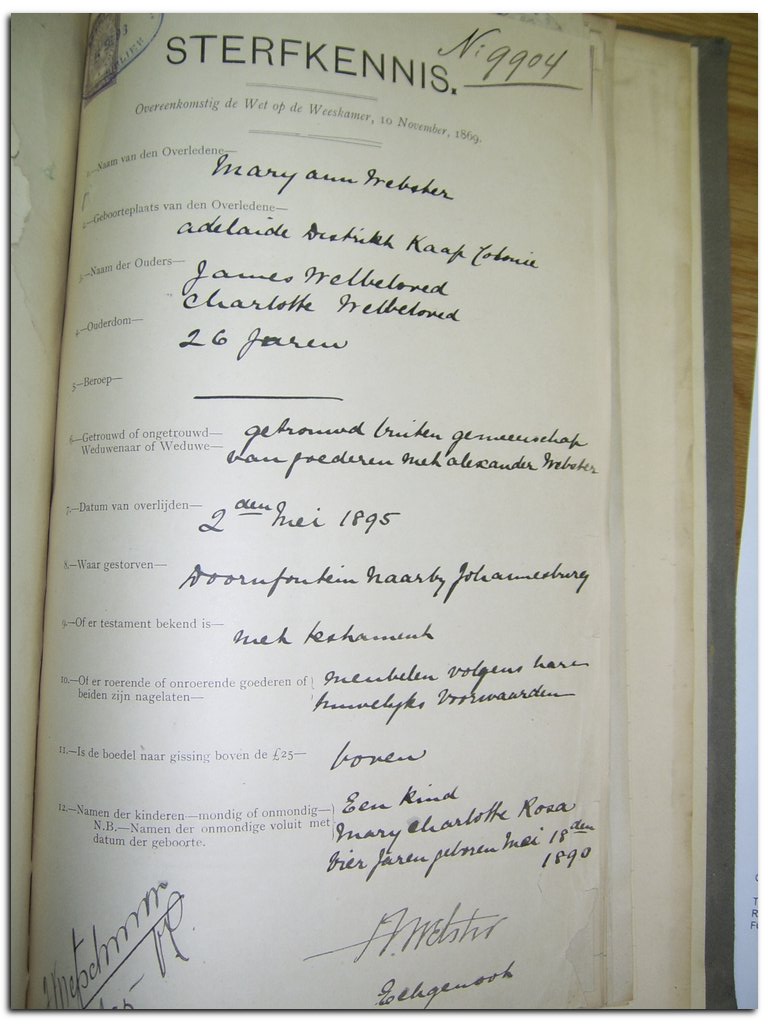 STERFKENNIS.
No 9904
Overeenkomstig de Wet op de Weeskamer, 10 November, 1869.
1.—Naam van den Overledene—
Mary ann Webster
2.—Geboorteplaats van den Overledene—
adelaide Distrikt Kaap Colonie
3.—Naam der Ouders—
James Welbeloved
Charlotte Welbeloved
4.—Ouderdom—
26 Jaren
5.—Beroep—
6.—Getrouwd of ongetrouwd—
Weduwenaar of Weduwe—
getrouwd buiten gemeenschap
van goederen met alexander Webster
7.—Datum van overlijden—
2den Mei 1895
8.—Waar gestorven—
Doornfontein Naarby Johannesburg
9.—Of er testament bekend is—
met testament
10.—Of er roerende of onroerende goederen of
beiden zijn nagelaten—
meubelen volgens hare
huwelyks Voorwaarden
11.—Is de boedel naar gissing boven de £25—
boven
12.—Namen der kinderen—mondig of onmondig—
N.B.—Namen der onmondige voluit met
datum der geboorte.
Een Kind
Mary Charlotte Rosa
Vier Jaren geboren Mei 18den
1890
A. Webster
Echgenoot